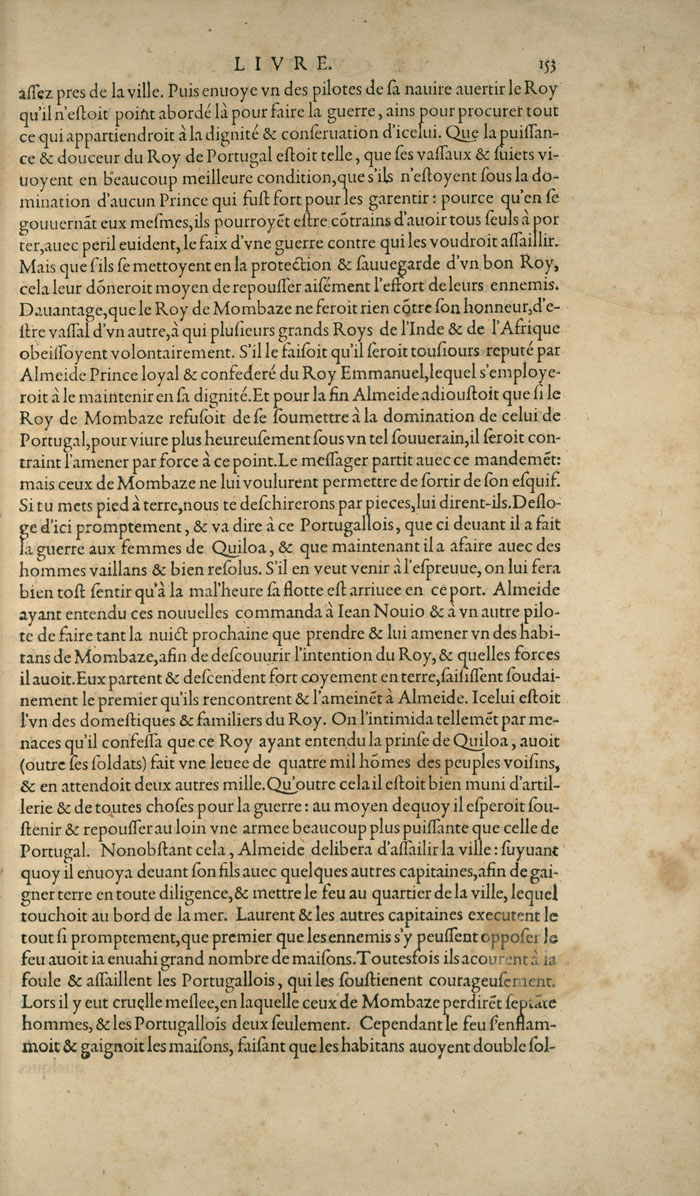 LIVRE. 153
aſſez pres de la ville. Puis enuoye vn des pilotes de ſa nauire auertir le Roy
qu'il n'eſtoit point abordé là pour faire la guerre, ains pour procurer tout
ce qui appartiendroit à la dignité & conſeruation d'icelui. Que la puiſſan-
ce & douceur du Roy de Portugal eſtoit telle, que ſes vaſſaux & ſuiets vi-
uoyent en beaucoup meilleure condition,que s'ils n'eſtoyent ſous la do-
mination d'aucun Prince qui fuſt fort pour les garentir : pource qu'en ſe
gouuernãt eux meſmes,ils pourroyẽt eſtre cõtrains d'auoir tous ſeuls à por
ter,auec peril euident, le faix d'vne guerre contre qui les voudroit aſſaillir.
Mais que ſ'ils ſe mettoyent en la protection & ſauuegarde d'vn bon Roy,
cela leur dõneroit moyen de repouſſer aiſément l'effort de leurs ennemis.
Dauantage,que le Roy de Mombaze ne feroit rien cõtre ſon honneur,d'e-
ſtre vaſſal d'vn autre,à qui pluſieurs grands Roys de l'Inde & de l'Afrique
obeiſſoyent volontairement. S'il le faiſoit qu'il ſeroit touſiours reputé par
Almeide Prince loyal & confederé du Roy Emmanuel,lequel s'employe-
roit à le maintenir en ſa dignité.Et pour la fin Almeide adiouſtoit que ſi le
Roy de Mombaze refuſoit de ſe ſoumettre à la domination de celui de
Portugal,pour viure plus heureuſement ſous vn tel ſouuerain,il ſeroit con-
traint l'amener par force à ce point.Le meſſager partit auec ce mandemẽt:
mais ceux de Mombaze ne lui voulurent permettre de ſortir de ſon eſquif.
Si tu mets pied à terre,nous te deſchirerons par pieces,lui dirent-ils.Deſlo-
ge d'ici promptement, & va dire à ce Portugallois, que ci deuant il a fait
la guerre aux femmes de Quiloa, & que maintenant il a afaire auec des
hommes vaillans & bien reſolus. S'il en veut venir à l'eſpreuue, on lui fera
bien toſt ſentir qu'à la mal'heure ſa flotte eſt arriuee en ce port. Almeide
ayant entendu ces nouuelles commanda à Iean Nouio & à vn autre pilo-
te de faire tant la nuict prochaine que prendre & lui amener vn des habi-
tans de Mombaze,afin de deſcouurir l'intention du Roy, & quelles forces
il auoit.Eux partent & deſcendent fort coyement en terre,ſaiſiſſent ſoudai-
nement le premier qu'ils rencontrent & l'ameinẽt à Almeide. Icelui eſtoit
l'vn des domeſtiques & familiers du Roy. On l'intimida tellemẽt par me-
naces qu'il confeſſa que ce Roy ayant entendu la prinſe de Quiloa, auoit
(outre ſes ſoldats) fait vne leuee de quatre mil hõmes des peuples voiſins,
& en attendoit deux autres mille.Qu'outre cela il eſtoit bien muni d'artil-
lerie & de toutes choſes pour la guerre : au moyen dequoy il eſperoit ſou-
ſtenir & repouſſer au loin vne armee beaucoup plus puiſſante que celle de
Portugal. Nonobſtant cela, Almeide delibera d'aſſailir la ville : ſuyuant
quoy il enuoya deuant ſon fils auec quelques autres capitaines,afin de gai-
gner terre en toute diligence,& mettre le feu au quartier de la ville, lequel
touchoit au bord de la mer. Laurent & les autres capitaines executent le
tout ſi promptement,que premier que les ennemis s'y peuſſent oppoſer le
feu auoit ia enuahi grand nombre de maiſons.Toutesfois ils acourent à la
foule & aſſaillent les Portugallois, qui les ſouſtienent courageuſement.
Lors il y eut cruelle meſlee,en laquelle ceux de Mombaze perdirẽt ſeptãte
hommes, & les Portugallois deux ſeulement. Cependant le feu ſ'enflam-
moit & gaignoit les maiſons, faiſant que les habitans auoyent double ſol-